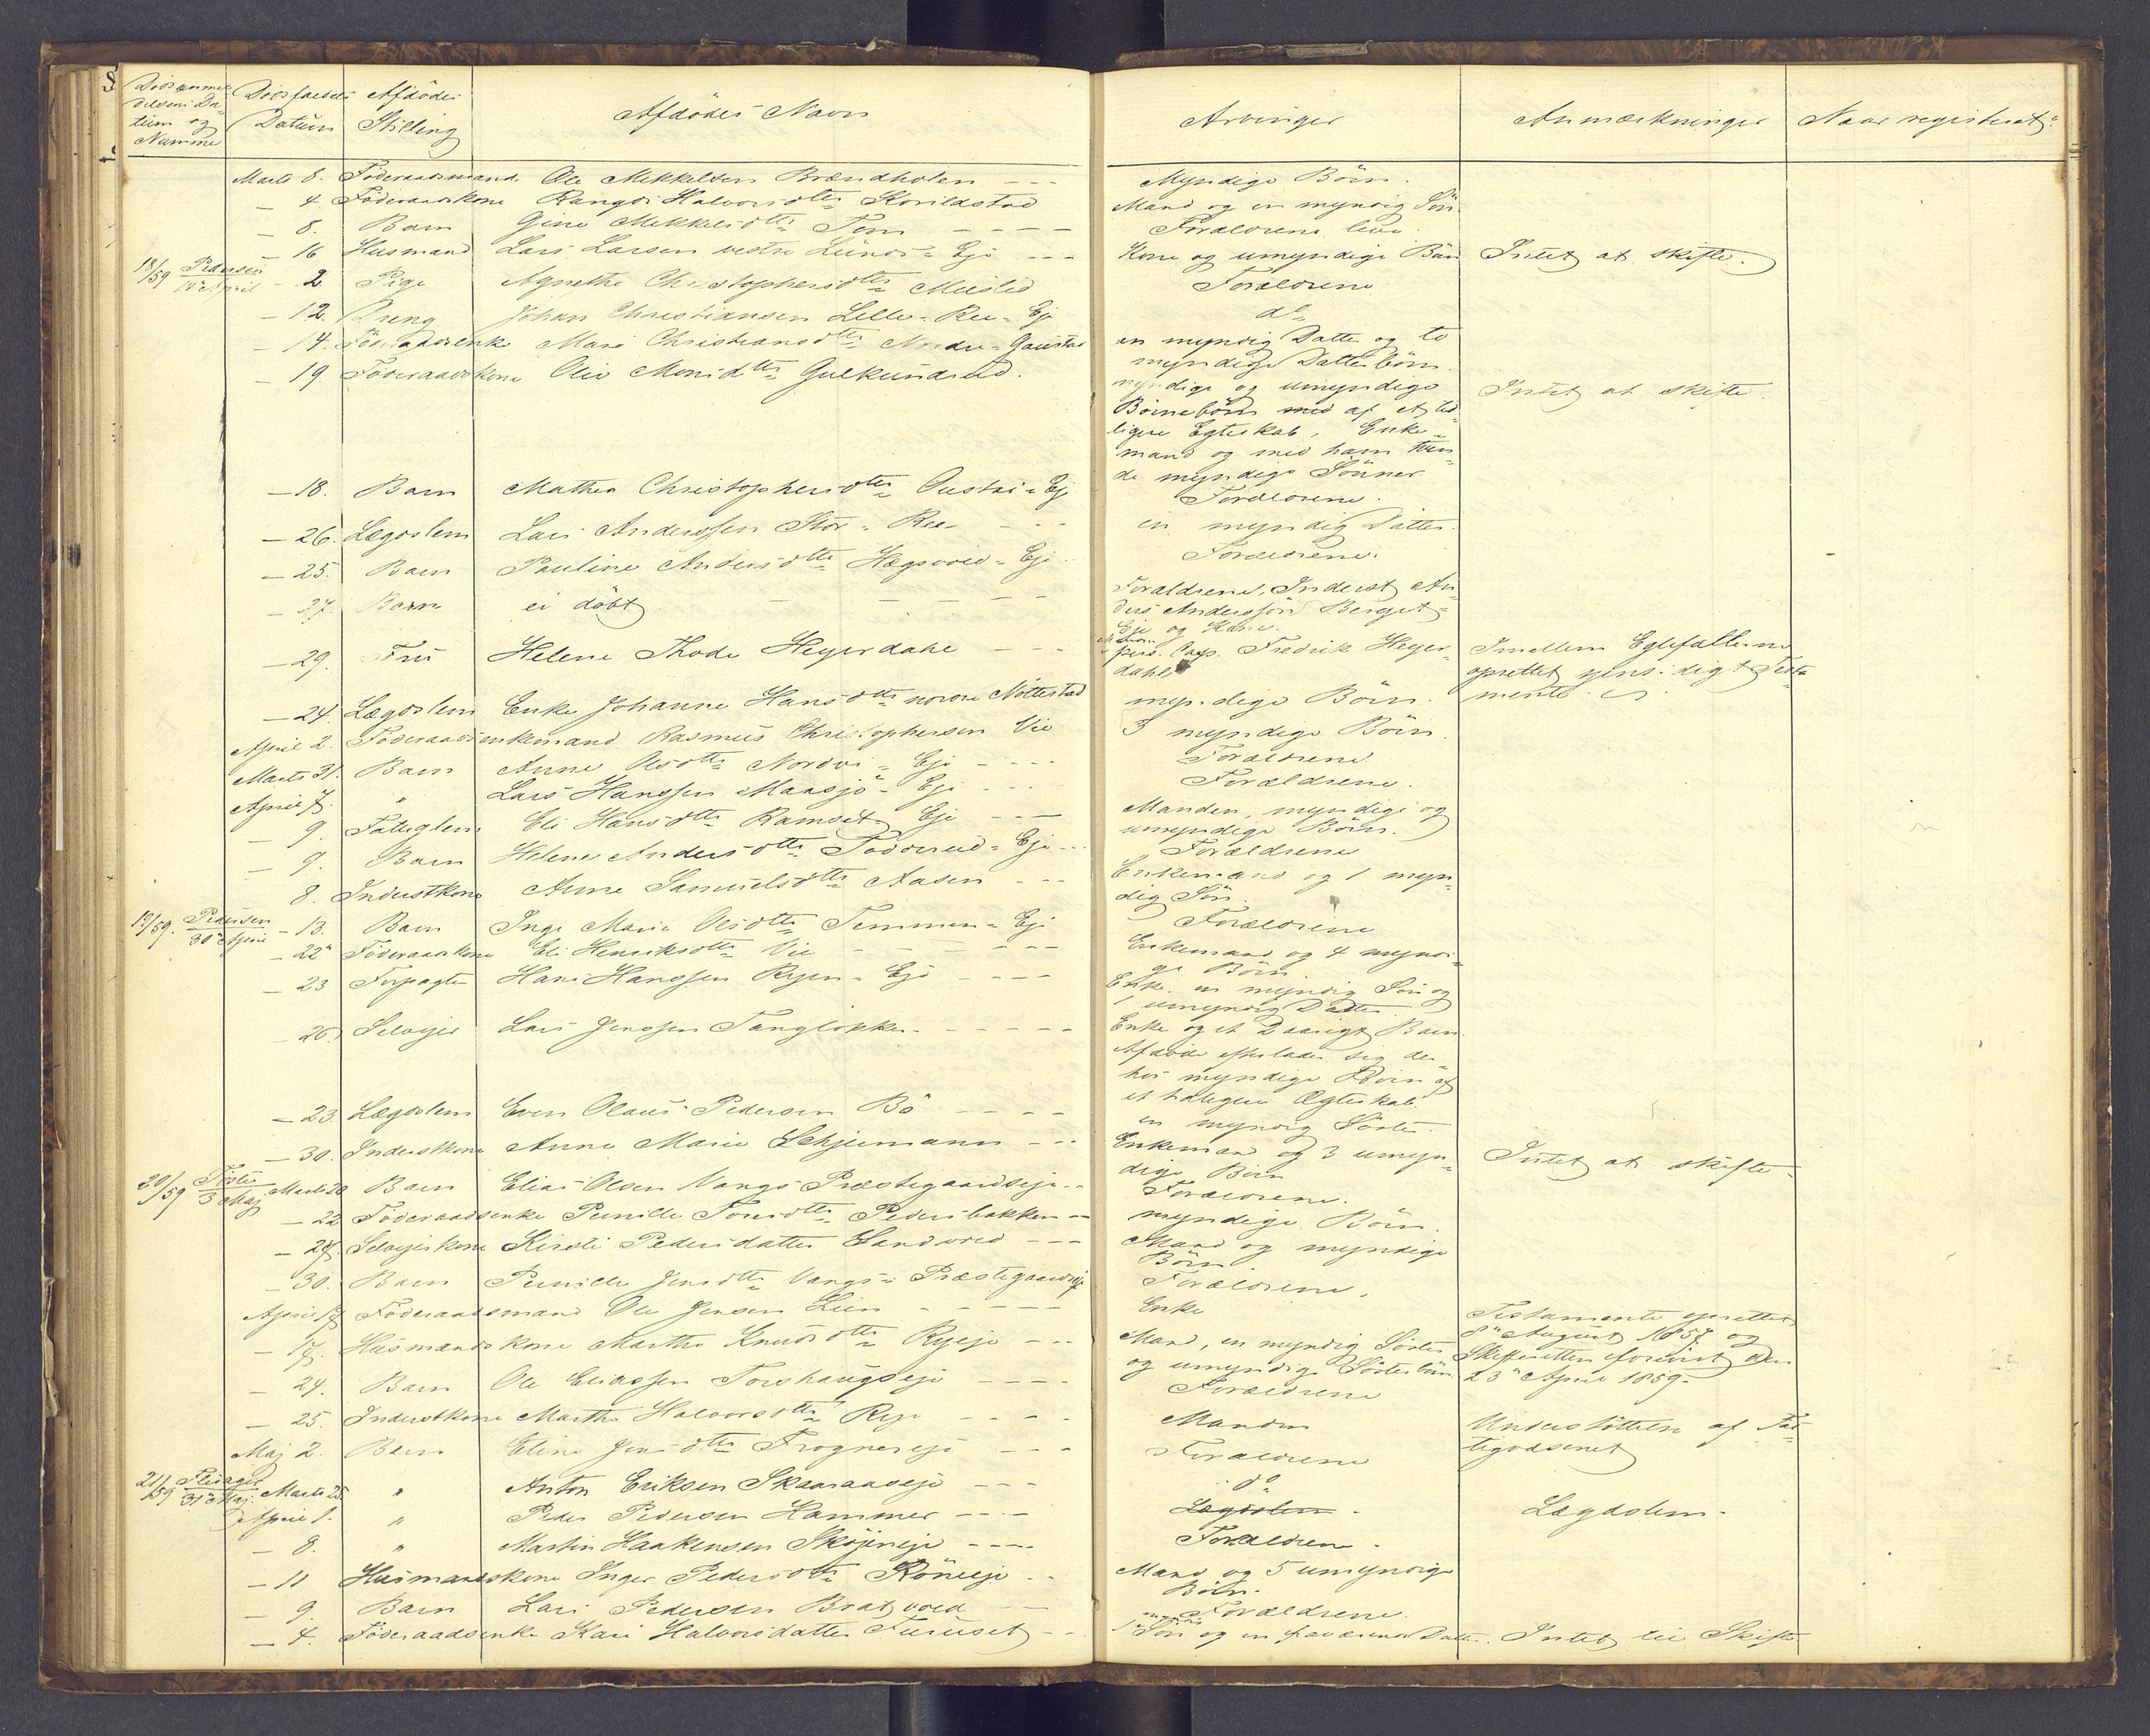 Dødsanmel- Dødsfaldets Afdødes Afdødes Navn Arvinger Anmærkninger Naar registreret
delsens Da-
tum og Datum Stilling
Numme
Marts 8. Föderaadsmand Ole Mikkelsen Brændholen - - Myndige Börn.
— 4. Föderaadskone Rangdi Halvorsdttr Korildstad Mand og en myndig Sön.
— 8. Barn Gine Mikkelsdttr Tom - - - - Forældrene leve.
— 16 Husmand Lars Larsen vestre Lunds-Eje - - - Kone og umyndige Börn Intet at skifte.
18/59 Pedersen 10de April - 2 Pige Agnethe Christophersdttr Mislid Forældrene
— 12. Dreng Johan Christiansen Lille-Ree-Eje do
— 14. Föderaadsenke Mari Christiansdttr Nordre-Gaustad en myndig Datter og to
myndige Datterbörn.
— 19 Föderaadskone Olie Monsdttr Gulkundrud. myndige og umyndige Intet at skifte.
Börnebörn med af et tid-
ligere Egteskab, Enke-
mand og med ham
de myndige Sönner
— 18. Barn Mathea Christophersdttr Ousdri-Eje Forældrene.
— 26. Lægdslem Lars Anderssen Stor-Ree - - - en myndig Datter.
— 25. Barn Pauline Andersdttr Hægsvold-Eje Forældrene.
— 27. Barn ei döbt - - - - Forældrene, Inderst An-
ders Anderssön Berget-
Eje og Kone.
— 29. Fru Helene Thode Heyerdahl - - - pers. Cap. Fredrik Heyer- Imellem Egtefællerne
dahl oprettet gensidigt Testa-
mente.
— 24. Lægdslem Enke Johanne Hansdttr nordre Nöttestad myndige Börn.
April 2. Föderaadsenkemand Rasmus Christophersen Vie 3 myndige Börn.
Marts 31. Barn Anne Olsdttr Nordvi-Eje - - - Forældrene
April 7. " Lars Hanssen Maasjö-Eje - - - Forældrene.
— 9. Fattiglem Eli Hansdttr Ramset Eje - - - Manden, myndige og
umyndige Börn.
— 9. Barn Helene Andersdttr Todderud-Eje - - Forældrene
8. Inderstkone Anne Samuelsdttr Aasen - - - Enkemand og 1 myn-
dig Sön.
19/59. Pedersen 30te April - 13. Barn Inge Marie Olsdttr Temmen-Eje Forældrene
— 22 Föderaadskone Eli Henriksdttr Vie - - - - Enkemand og 4 myndi-
ge Börn.
— 23 Forpagter Hans Hanssen Ryen-Eje - - - Enke, en myndig Sön og
1 umyndig Datter
26 Selveier Lars Jenssen Tangløkken - - - - Enke og et 2 aarigt Barn.
Afdöde efterlader sig des-
hos myndige Börn af
et tidligere Ægteskab.
— 23. Lægdslem Even Olaus Pedersen Bö - - - - en myndig Söster.
— 30. Inderstkone Anne Marie Schjermann - - - Enkemand og 3 umyn- Intet at skifte.
dige Börn
20/59 3 Maj Marts 20 Barn Elias Olsen Vangs Præstegaardseje - - Forældrene.
— 22 Föderaadsenke Pernille Torsdttr Pedersbakken - myndige Börn.
— 28. Selveierskone Kirsti Pedersdatter Sandvold - - - Mand og myndige
Börn.
— 30. Barn Pernille Jensdttr Vangs-Præstegaardseje Forældrene.
April 18 Föderaadsmand Ole Jensen Lien - - - - Enke Testamente oprettet
8de August 1857 og
— 17. Husmandskone Marthe Knudsdttr Ryeje - - - Mand, en myndig Söster Skifteretten forevist den
og umyndige Sösterbörn 23de April 1859.
— 24. Barn Ole Eliassen Torshaugseje - - - - Forældrene
— 25. Inderstkone Marthe Halvorsdttr Reje - - - - Manden Understöttelse af Fat-
tigvæsenet
Maj 2. Barn Eline Jensdttr Frognereje - - - Forældrene
21/59 Flisager 31te Maj. Marts 25 " Anton Eriksen Skaaraaseje - - - do
April 1. " Peder Pedersen Hammer - - - Lægdslem. Lægdslem.
— 8. " Martin Haakensen Sköjeneje - - - Forældrene.
— 11 Husmandskone Inger Pedersdttr Röneeje - - Mand og 5 umyndige
Börn.
— 9. Barn Lars Pedersen Bratvold - - Forældrene.
— 4. Föderaadsenke Kari Halvorsdatter Furuset - - 1 myndig Sön og en fraværende Datter. Intet til Skifte